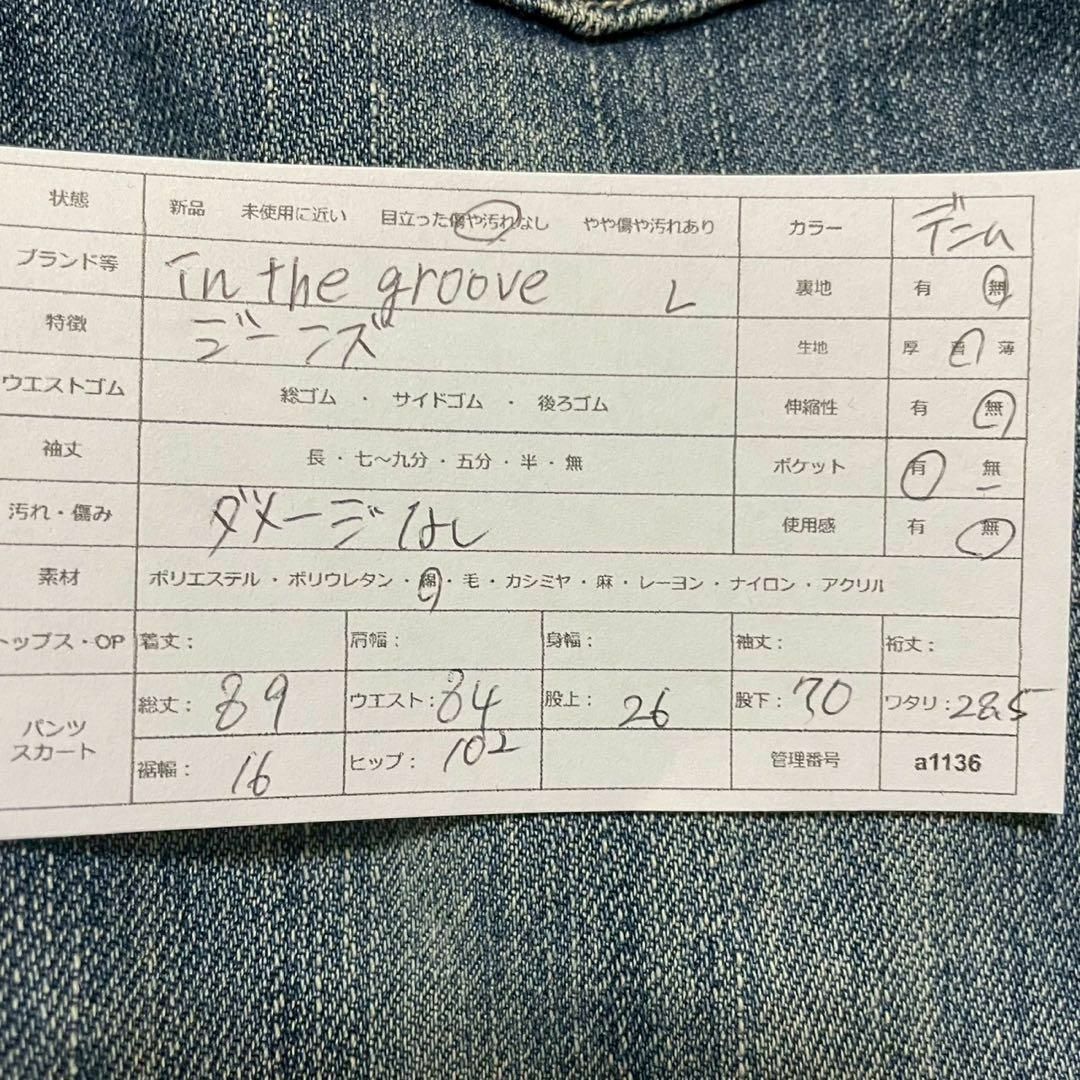 状態 新品 未使用に近い 目立った傷や汚れなし やや傷や汚れあり カラー デニム
ブランド等 in the groove L 裏地 有 無
特徴 ジーンズ 生地 厚 普 薄
ウエストゴム 総ゴム ・ サイドゴム ・ 後ろゴム 伸縮性 有 無
袖丈 長・七～九分・五分・半・無 ポケット 有 無
汚れ・傷み ダメージなし 使用感 有 無
素材 ポリエステル・ポリウレタン・綿・毛・カシミヤ・麻・レーヨン・ナイロン・アクリル
トップス・OP 着丈： 肩幅： 身幅： 袖丈： 裄丈：
パンツ スカート 総丈：89 ウエスト：84 股上：26 股下：70 ワタリ：28.5
裾幅：16 ヒップ：102 管理番号 a1136